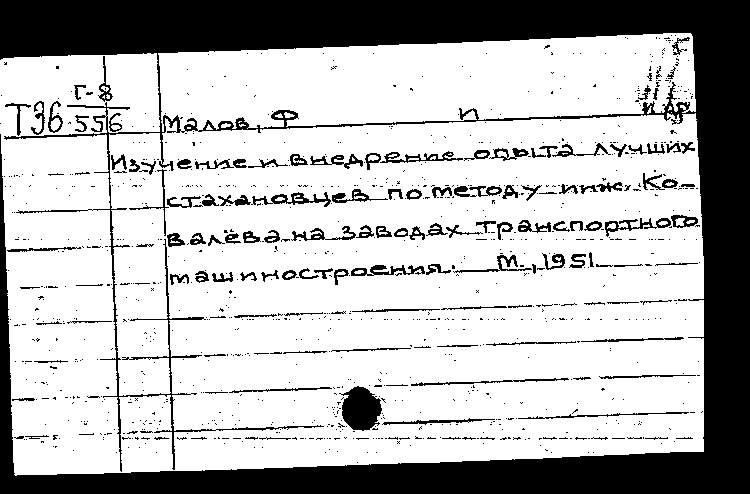 Г-8
Т36 556 Малов, Ф П и др
Изучение и внедрение опыта лучших
стахановцев по методу инж. Ко-
валёва на заводах транспортного
машиностроения. М., 1951